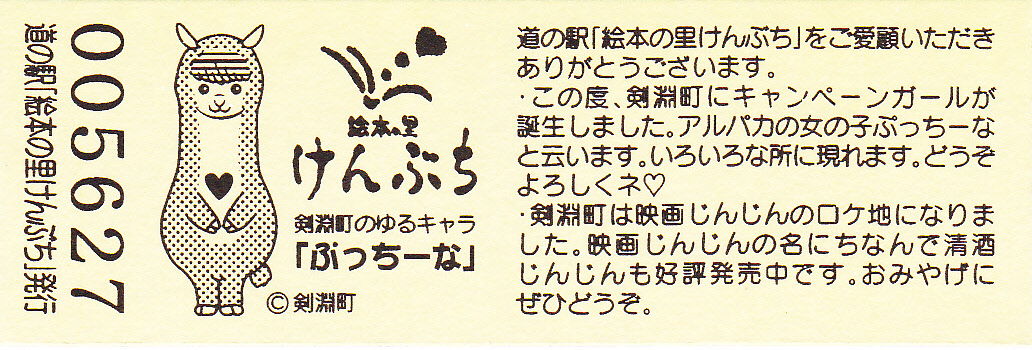 005627
道の駅「絵本の里けんぶち」発行
絵本の里
けんぶち
剣淵町のゆるキャラ
「ぷっちーな」
©剣淵町
道の駅「絵本の里けんぶち」をご愛顧いただき
ありがとうございます。
・この度、剣淵町にキャンペーンガールが
誕生しました。アルパカの女の子ぷっちーな
と云います。いろいろな所に現れます。どうぞ
よろしくネ♡
・剣淵町は映画じんじんのロケ地になりま
した。映画じんじんの名にちなんで清酒
じんじんも好評発売中です。おみやげに
ぜひどうぞ。